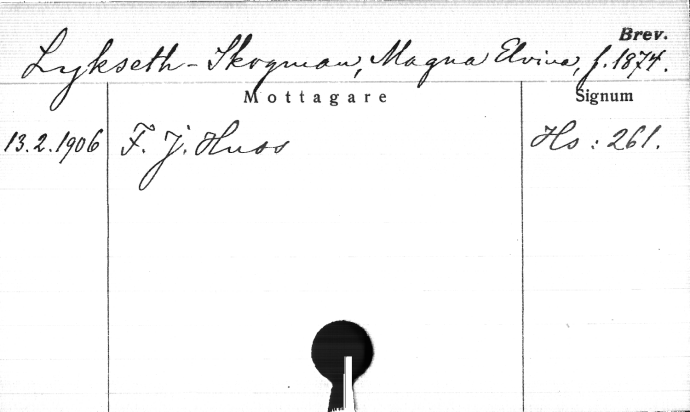 Brev.
Lykseth-Skogman, Magna Elvina, f. 1874.
Mottagare Signum
13.2.1906 F. J. Huss Hs: 261.